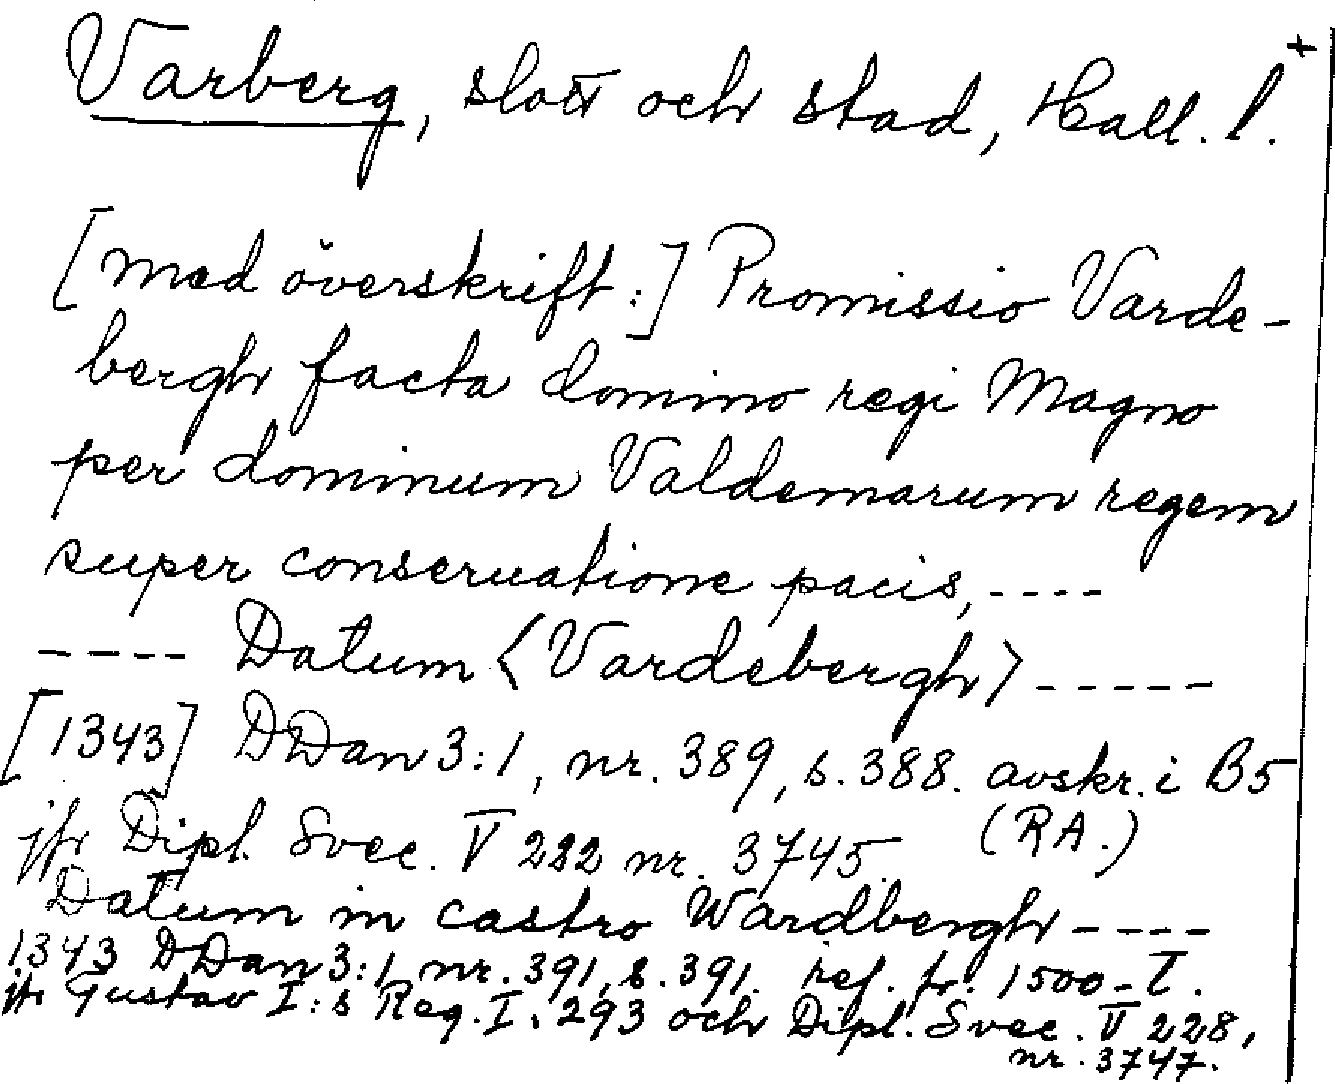 Varberg, slott och stad, Hall. l. +
[med överskrift:] Promissio Varde-
bergh facta domino regi Magno
per dominum Valdemarum regem
super conseruatione pacis, ----
---- Datum <Vardebergh> -----
[1343] DDan 3:1, nr. 389, s. 388. avskr. i B5
(RA.)
jfr Dipl. Svec. V 222 nr. 3745.
Datum in castro Wardbergh ----
1343 DDan 3:1, nr. 391, s. 391. ref. fr. 1500-t.
jfr Gustav I:s Reg. I. 293 och Dipl. Svec. V 228,
nr. 3747.